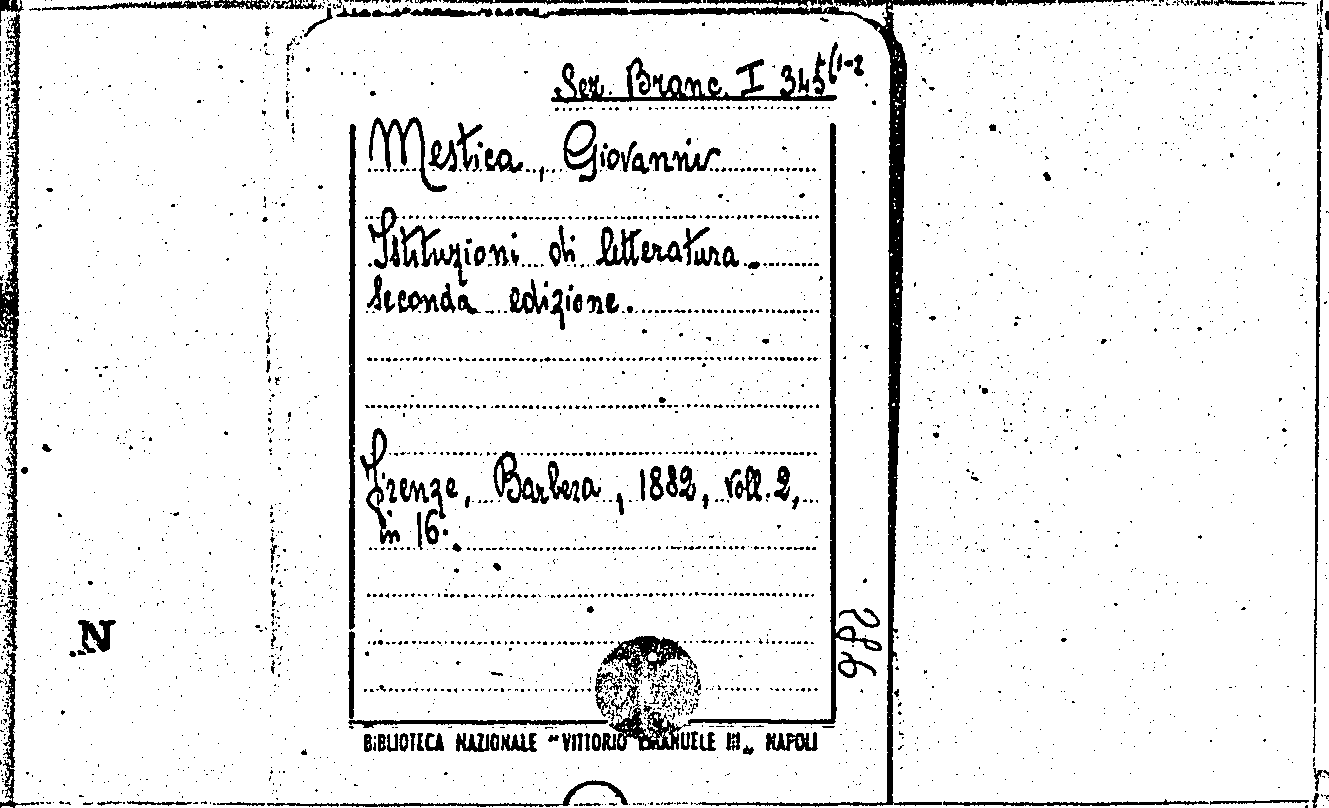 Sez. Branc. I 345(1-2
Mestica, Giovanni
Istituzioni di letteratura.
Seconda edizione.
Firenze, Barbera, 1882, voll. 2,
in 16.
BIBLIOTECA NAZIONALE "VITTORIO EMANUELE III„ NAPOLI
N